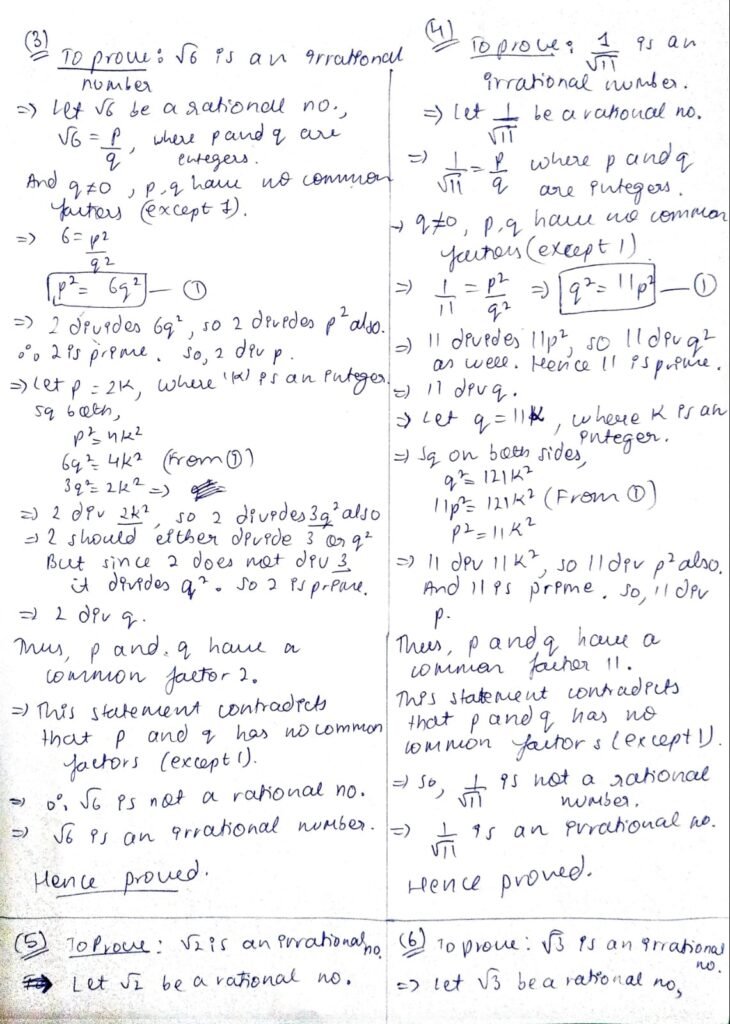 (3) To prove: √6 is an irrational
number
=> Let √6 be a rational no.,
√6 = p/q, where p and q are
integers.
And q≠0, p,q have no common
factors (except 1).
=> 6 = p²/q²
p² = 6q² — ①
=> 2 divides 6q², so 2 divides p² also.
∴ 2 is prime. So, 2 div p.
=> Let p = 2K, where '(K)' is an integer.
sq both,
p² = 4k²
6q² = 4k² (From ①)
3q² = 2k² =>
=> 2 div 2k², so 2 divides 3q² also
=> 2 should either divide 3 or q²
But since 2 does not div 3
it divides q². So 2 is prime.
=> 2 div q.
Thus, p and q have a
common factor 2.
=> This statement contradicts
that p and q has no common
factors (except 1).
=> ∴ √6 is not a rational no.
=> √6 is an irrational number.
Hence proved.
(4) To prove: 1/√11 is an
irrational number.
=> Let 1/√11 be a rational no.
=> 1/√11 = p/q where p and q
are integers.
→ q≠0, p,q have no common
factors (except 1)
=> 1/11 = p²/q² => q² = 11p² — ①
=> 11 divides 11p², so 11 div q²
as well. Hence 11 is prime.
=> 11 div q.
=> Let q = 11K, where K is an
integer.
=> Sq on both sides,
q² = 121K²
11p² = 121K² (From ①)
p² = 11K²
=> 11 div 11K², so 11 div p² also.
And 11 is prime. So, 11 div
p.
Thus, p and q have a
common factor 11.
This statement contradicts
that p and q has no
common factors (except 1).
=> So, 1/√11 is not a rational
number.
=> 1/√11 is an irrational no.
Hence proved.
(5) To Prove: √2 is an irrational no.
Let √2 be a rational no.
(6) To prove: √3 is an irrational
no.
=> Let √3 be a rational no,